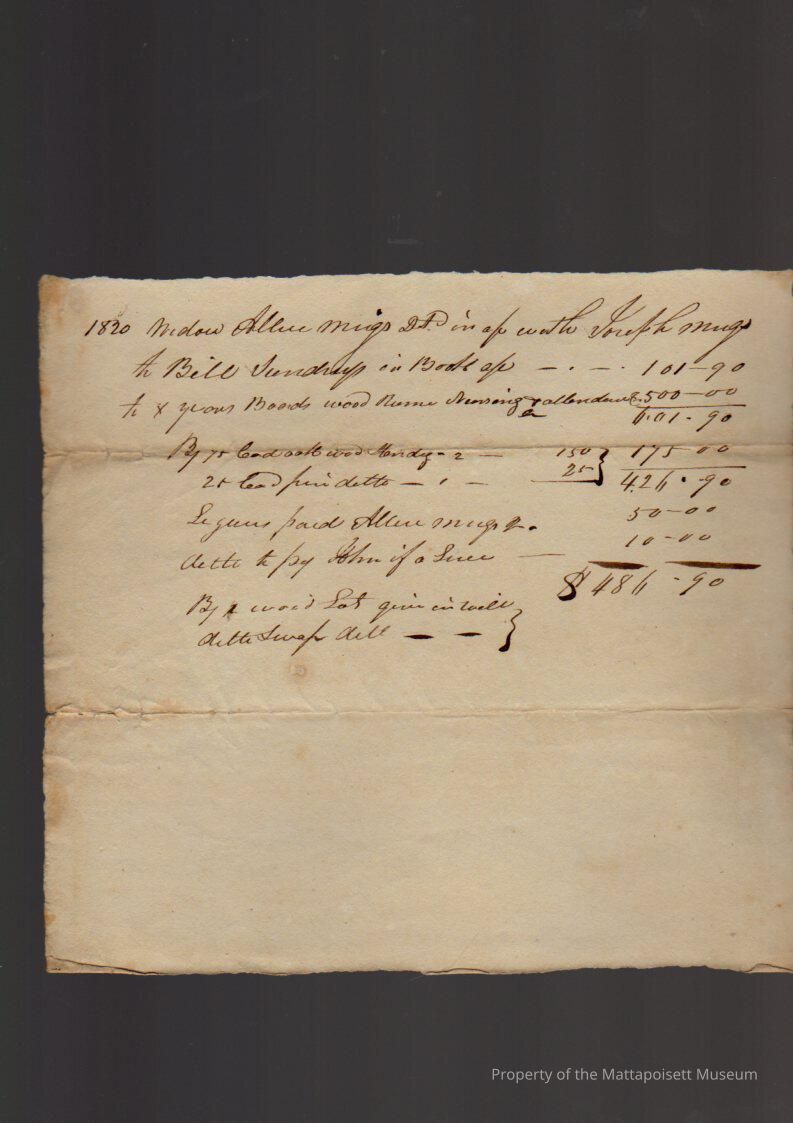 1820 Widow Allice Migs Dt. in a/c with Joseph Migs
to Bill Sundrys in Book a/c — . — . 101-90
to years Board wood Nursing & attendance 500-00
601-90
By 75 Cord oak wood 2 — 150 175-00
25 Cord pine detto — 25 426-90
Legucis paid Allice Migs 50-00
detto to py John if a Live — 10-00
$ 486-90
By wood Lot givin in will
detto Swap detto — —
Property of the Mattapoisett Museum